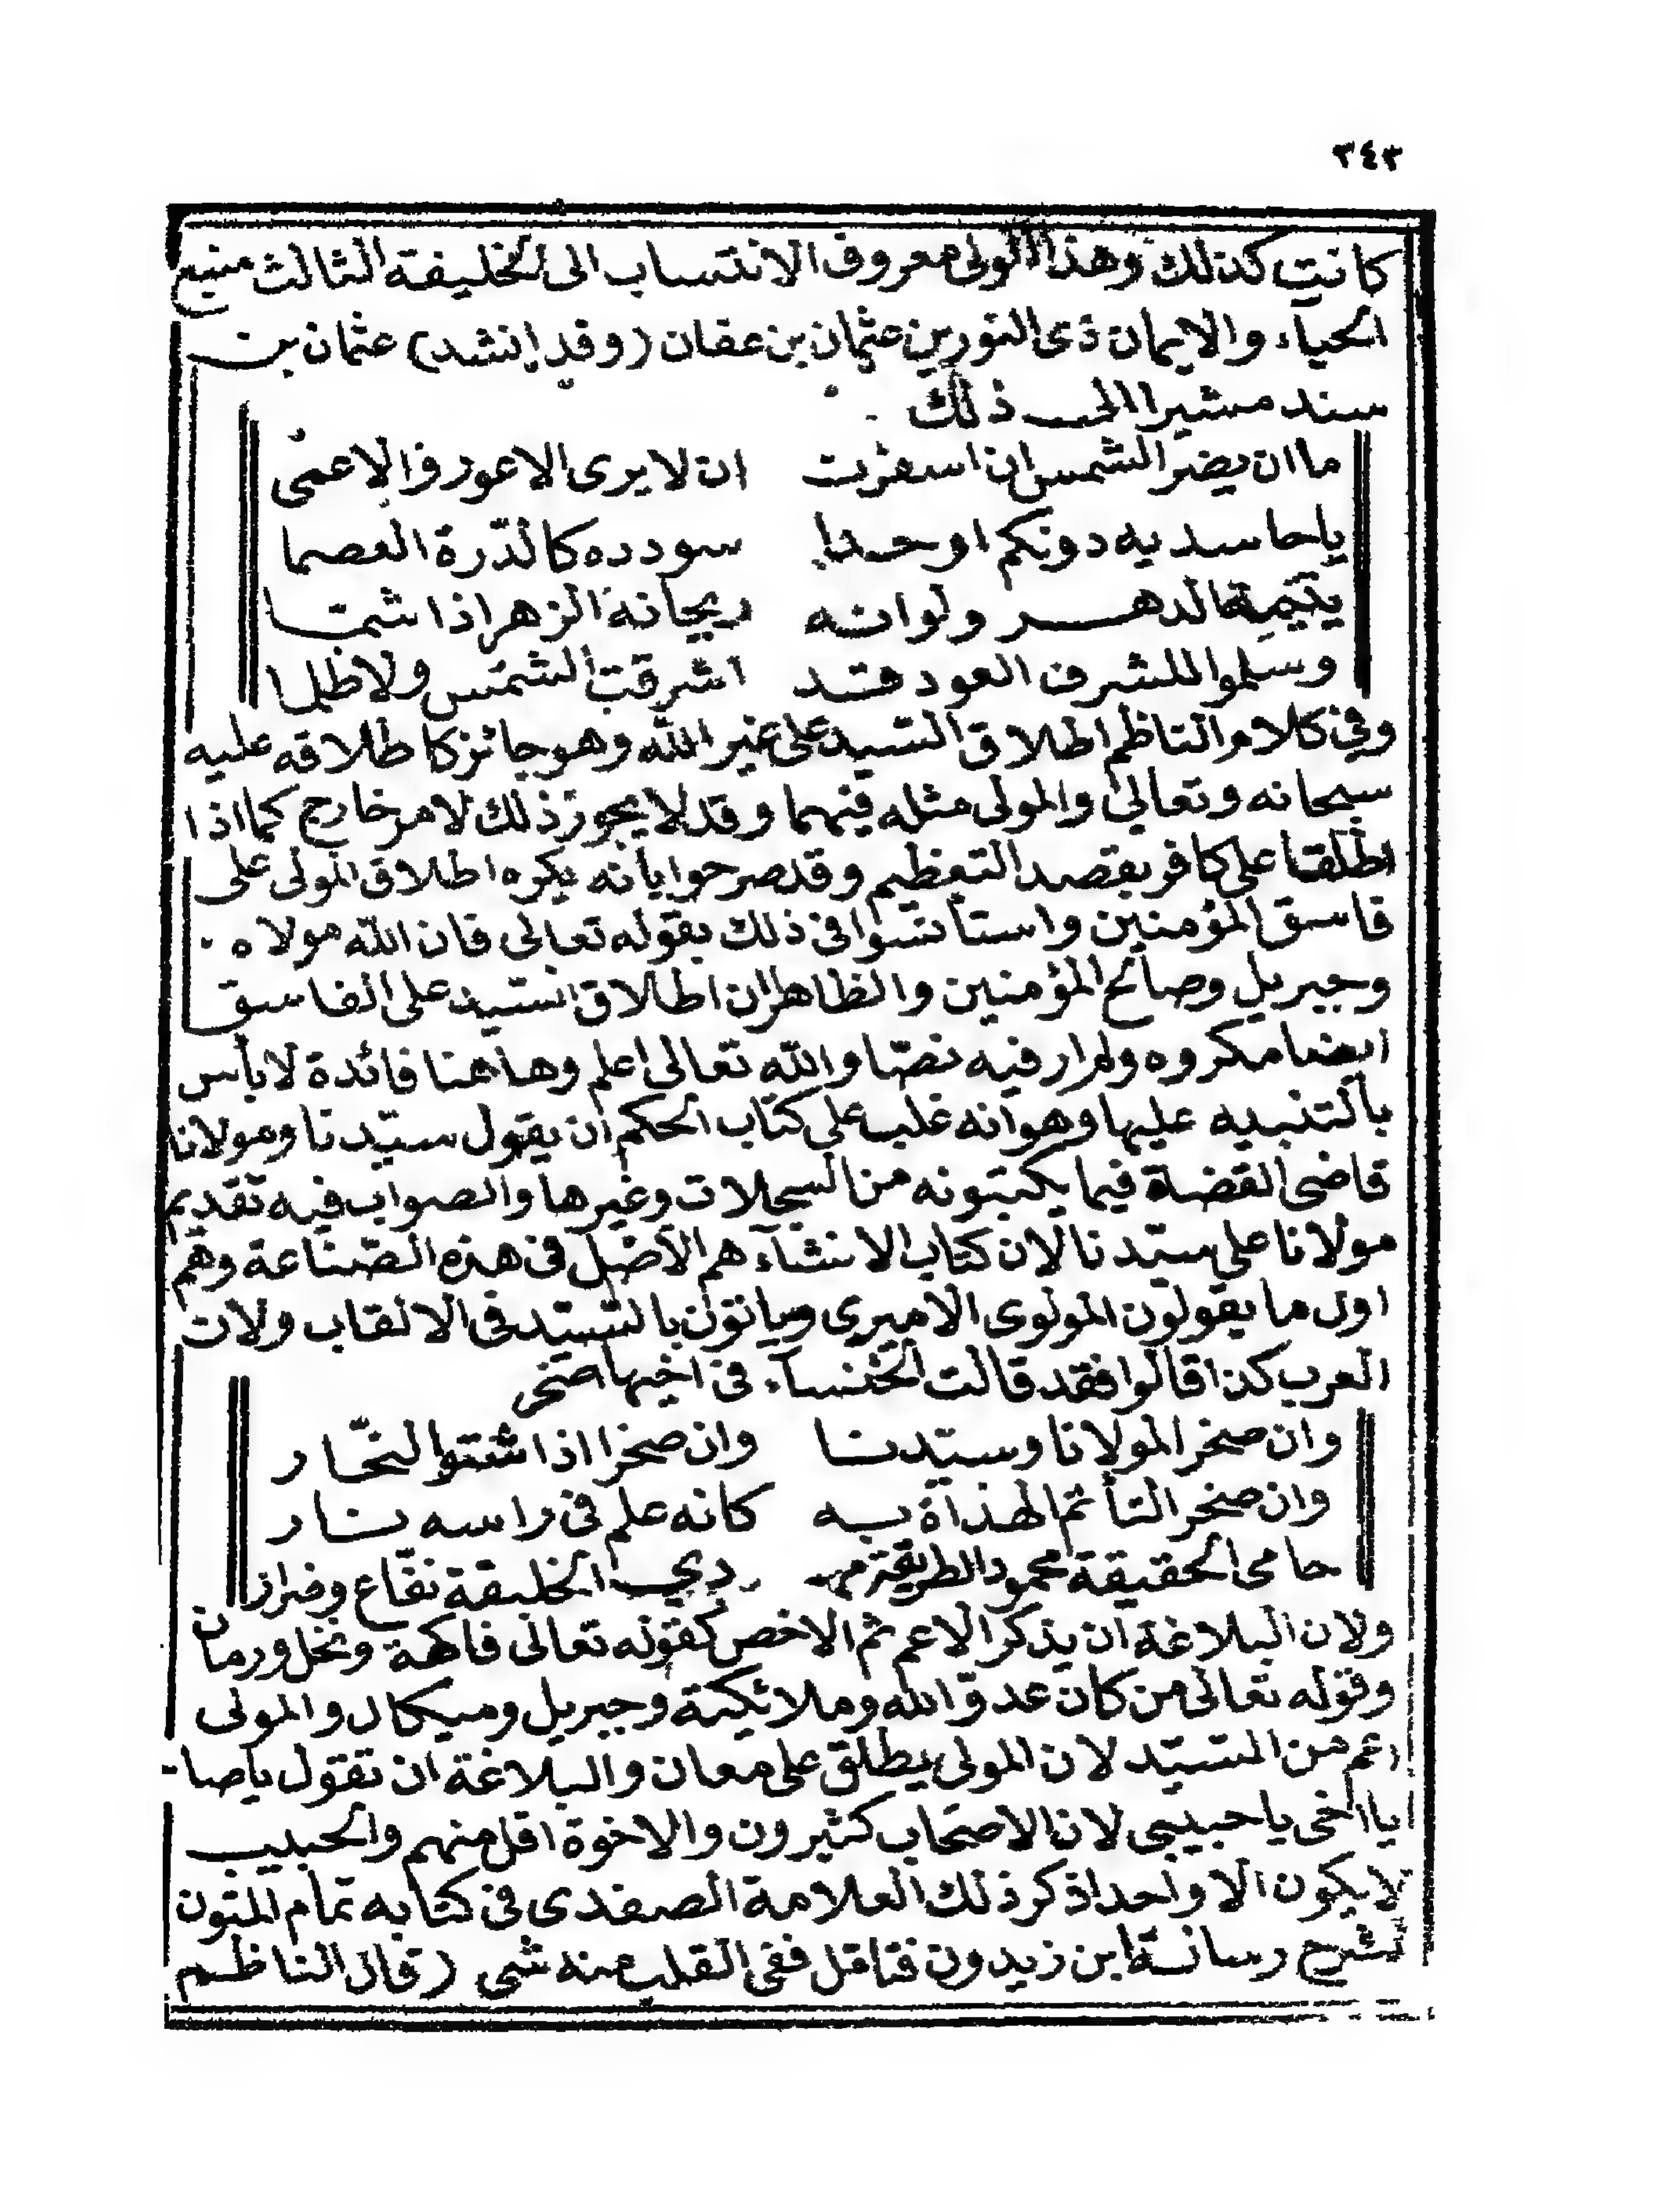 ٣٤٣
كانت كذلك وهذا المولى معروف الانتساب الى الخليفة الثالث منبع
الحياء والايمان ذى النورين عثمان بن عفان (وقد انشد) عثمان بن
سند مشيرا الى ذلك
ما ان يضر الشمس ان اسفرت ان لا يرى الاعور والاعمى
يا حاسديه دونكم اوحدا سودده كالدّرة العصما
يتيمة الدهر ولوانه ريحانة الزهر اذا شمتا
وسلموا للشرف العود فقد اشرقت الشمس ولا ظلما
وفى كلام الناظم اطلاق السيد على غير الله وهو جائز كاطلاقه عليه
سبحانه وتعالى والمولى مثله فيهما وقد لا يجوز ذلك لامر خارج كما اذا
اطلقا على كافر بقصد التعظيم وقد صرحوا بأنه يكره اطلاق المولى على
فاسق المؤمنين واستأنسوا فى ذلك بقوله تعالى فان الله مولاه
وجبريل وصالح المؤمنين والظاهر ان اطلاق السيد على الفاسق
ايضا مكروه ولم ار فيه نصّا والله تعالى اعلم وها هنا فائدة لا بأس
بالتنبيه عليها وهو انه غلب على كتاب الحكم ان يقول سيّدنا ومولانا
قاضى القضاة فيما يكتبونه من السجلات وغيرها والصواب فيه تقديم
مولانا على سيّدنا لان كتاب الانشآء هم الاصل فى هذه الصّناعة وهم
اول ما يقولون المولوى الاميرى وياتون بالسيّد فى الالقاب ولان
العرب كذا قالوا فقد قالت الخنسآء فى اخيها صخر
وان صخرا لمولانا وسيّدنا وان صخرا اذا شتوا لنحّار
وان صخرا لتأتم الهداة به كانه علم فى راسه نار
حامى الحقيقة محمود الطريقة مهدي الخليقة نفّاع وضرار
ولان البلاغة ان يذكر الاعم ثم الاخص كقوله تعالى فاكهة ونخل ورمان
وقوله تعالى من كان عدوّا لله وملائيكته وجبريل وميكال والمولى
اعم من السيّد لان المولى يطلق على معان والبلاغة ان تقول ياصا
يا اخى يا حبيبى لان الاصحاب كثيرون والاخوة اقل منهم والحبيب
لا يكون الا واحدا ذكر ذلك العلامة الصفدى فى كتابه تمام المتون
لشرح رسالة ابن زيدون فتامل ففى القلب منه شى (قال الناظم